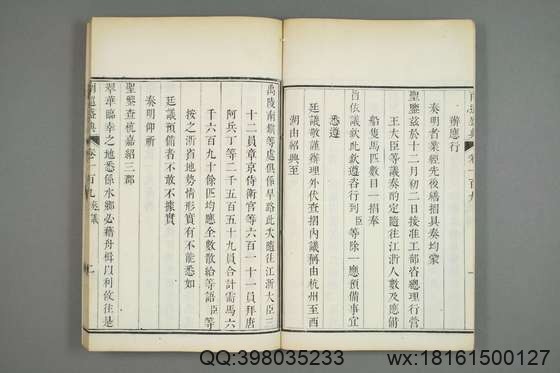 辦應行
奏明者業經先後繕摺具奏均蒙
聖鑒茲於十二月初二日接准工部咨總理行營
王大臣等議奏酌定隨往江浙人數及應備
船隻馬匹數目一摺奉
旨依議欽此欽遵咨行到臣等除一應預備事宜
悉遵
廷議敬謹辦理外伏查摺內議稱由杭州至西
湖由紹興至
禹陵南鎮等處俱係旱路此次隨往江浙大臣三
十二員章京侍衛官等六百一十一員拜唐
阿兵丁等二千五百五十九員合計需馬六
千六百九十餘匹均應全數散給等語臣等
按之浙省地勢情形實有不能悉如
廷議預備者不敢不據實
奏明仰祈
聖鑒查杭嘉紹三郡
翠華臨幸之地悉係水鄉必藉舟楫以利攸往是
南巡盛典 卷一百九 奏議
QQ:398035233
wx:18161500127